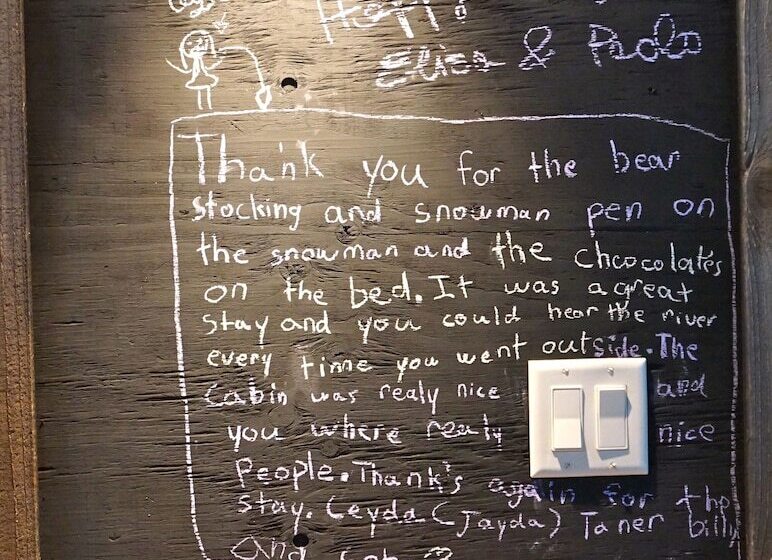 Elies & Paolo
Thank you for the bear
stocking and snowman pen on
the snowman and the chcocolates
on the bed. It was a great
stay and you could hear the river
every time you went outside. The
cabin was realy nice and
you where realy nice
People. Thank's again for the
stay. Ceyda (Jayda) Taner billy
And